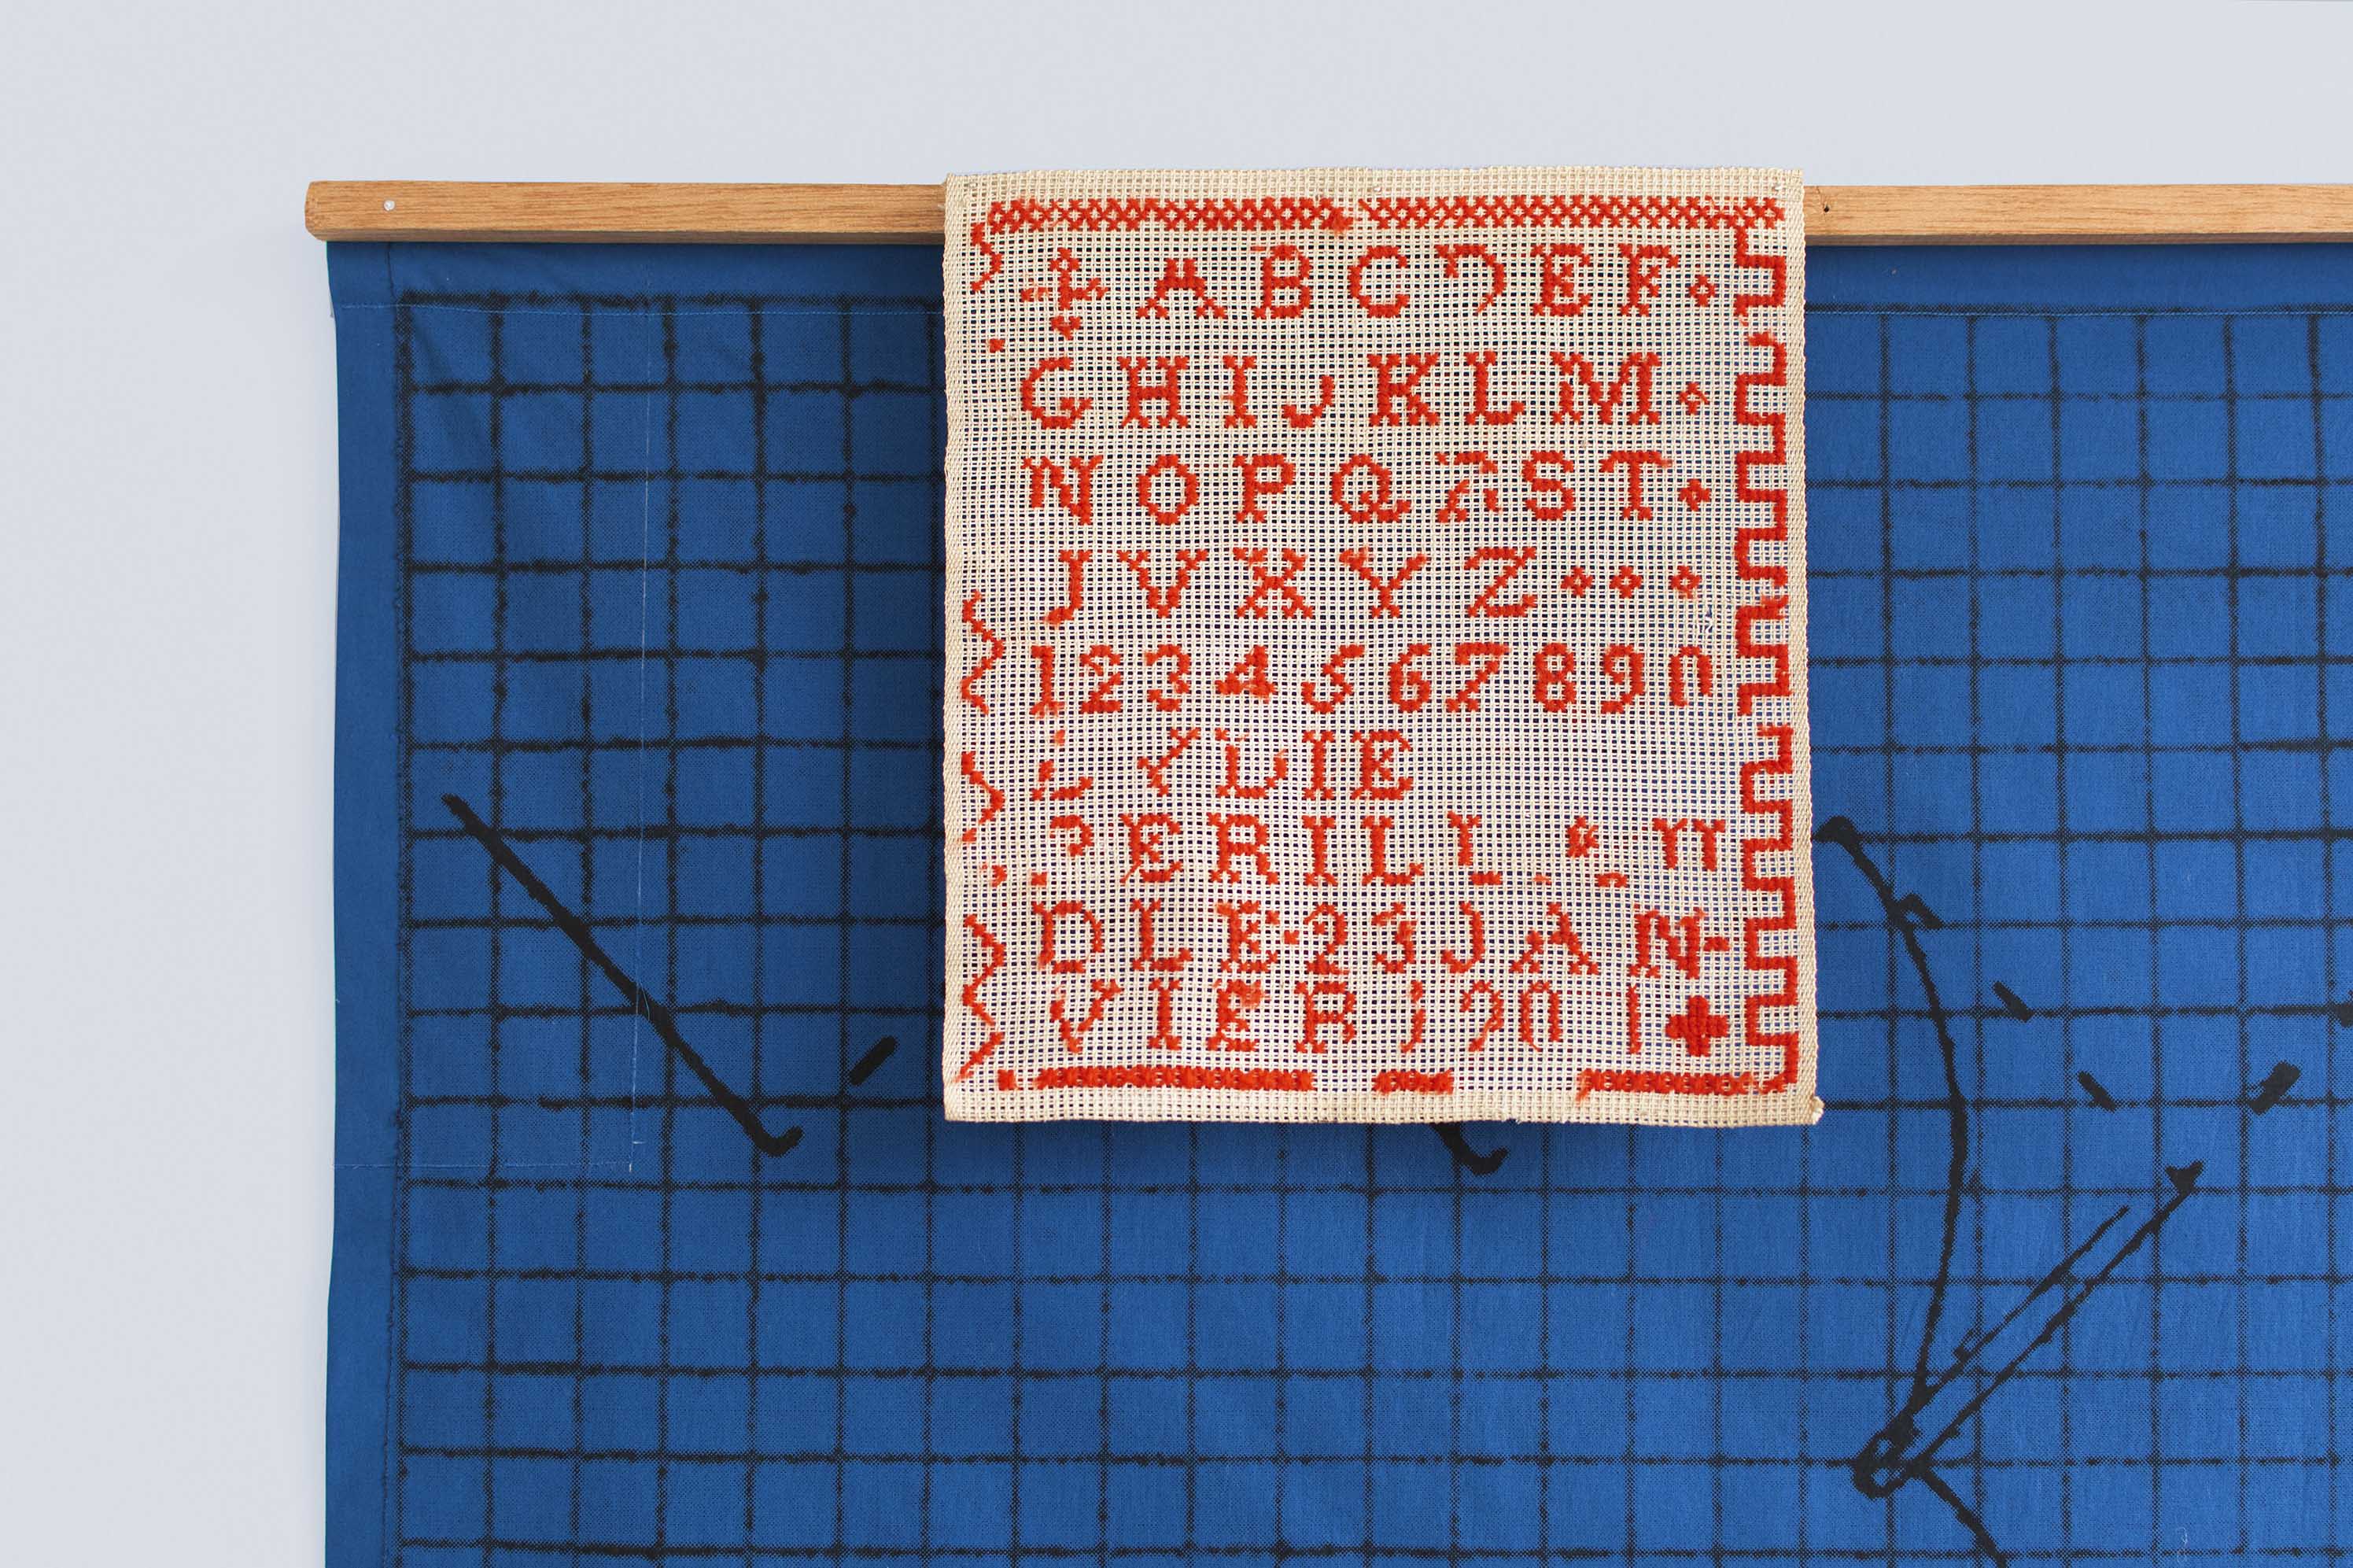 A B C D E F
G H I J K L M
N O P Q R S T
U V X Y Z
1 2 3 4 5 6 7 8 9 0
LIE
ERILL
DLE·23 JAN-
VIER 1901